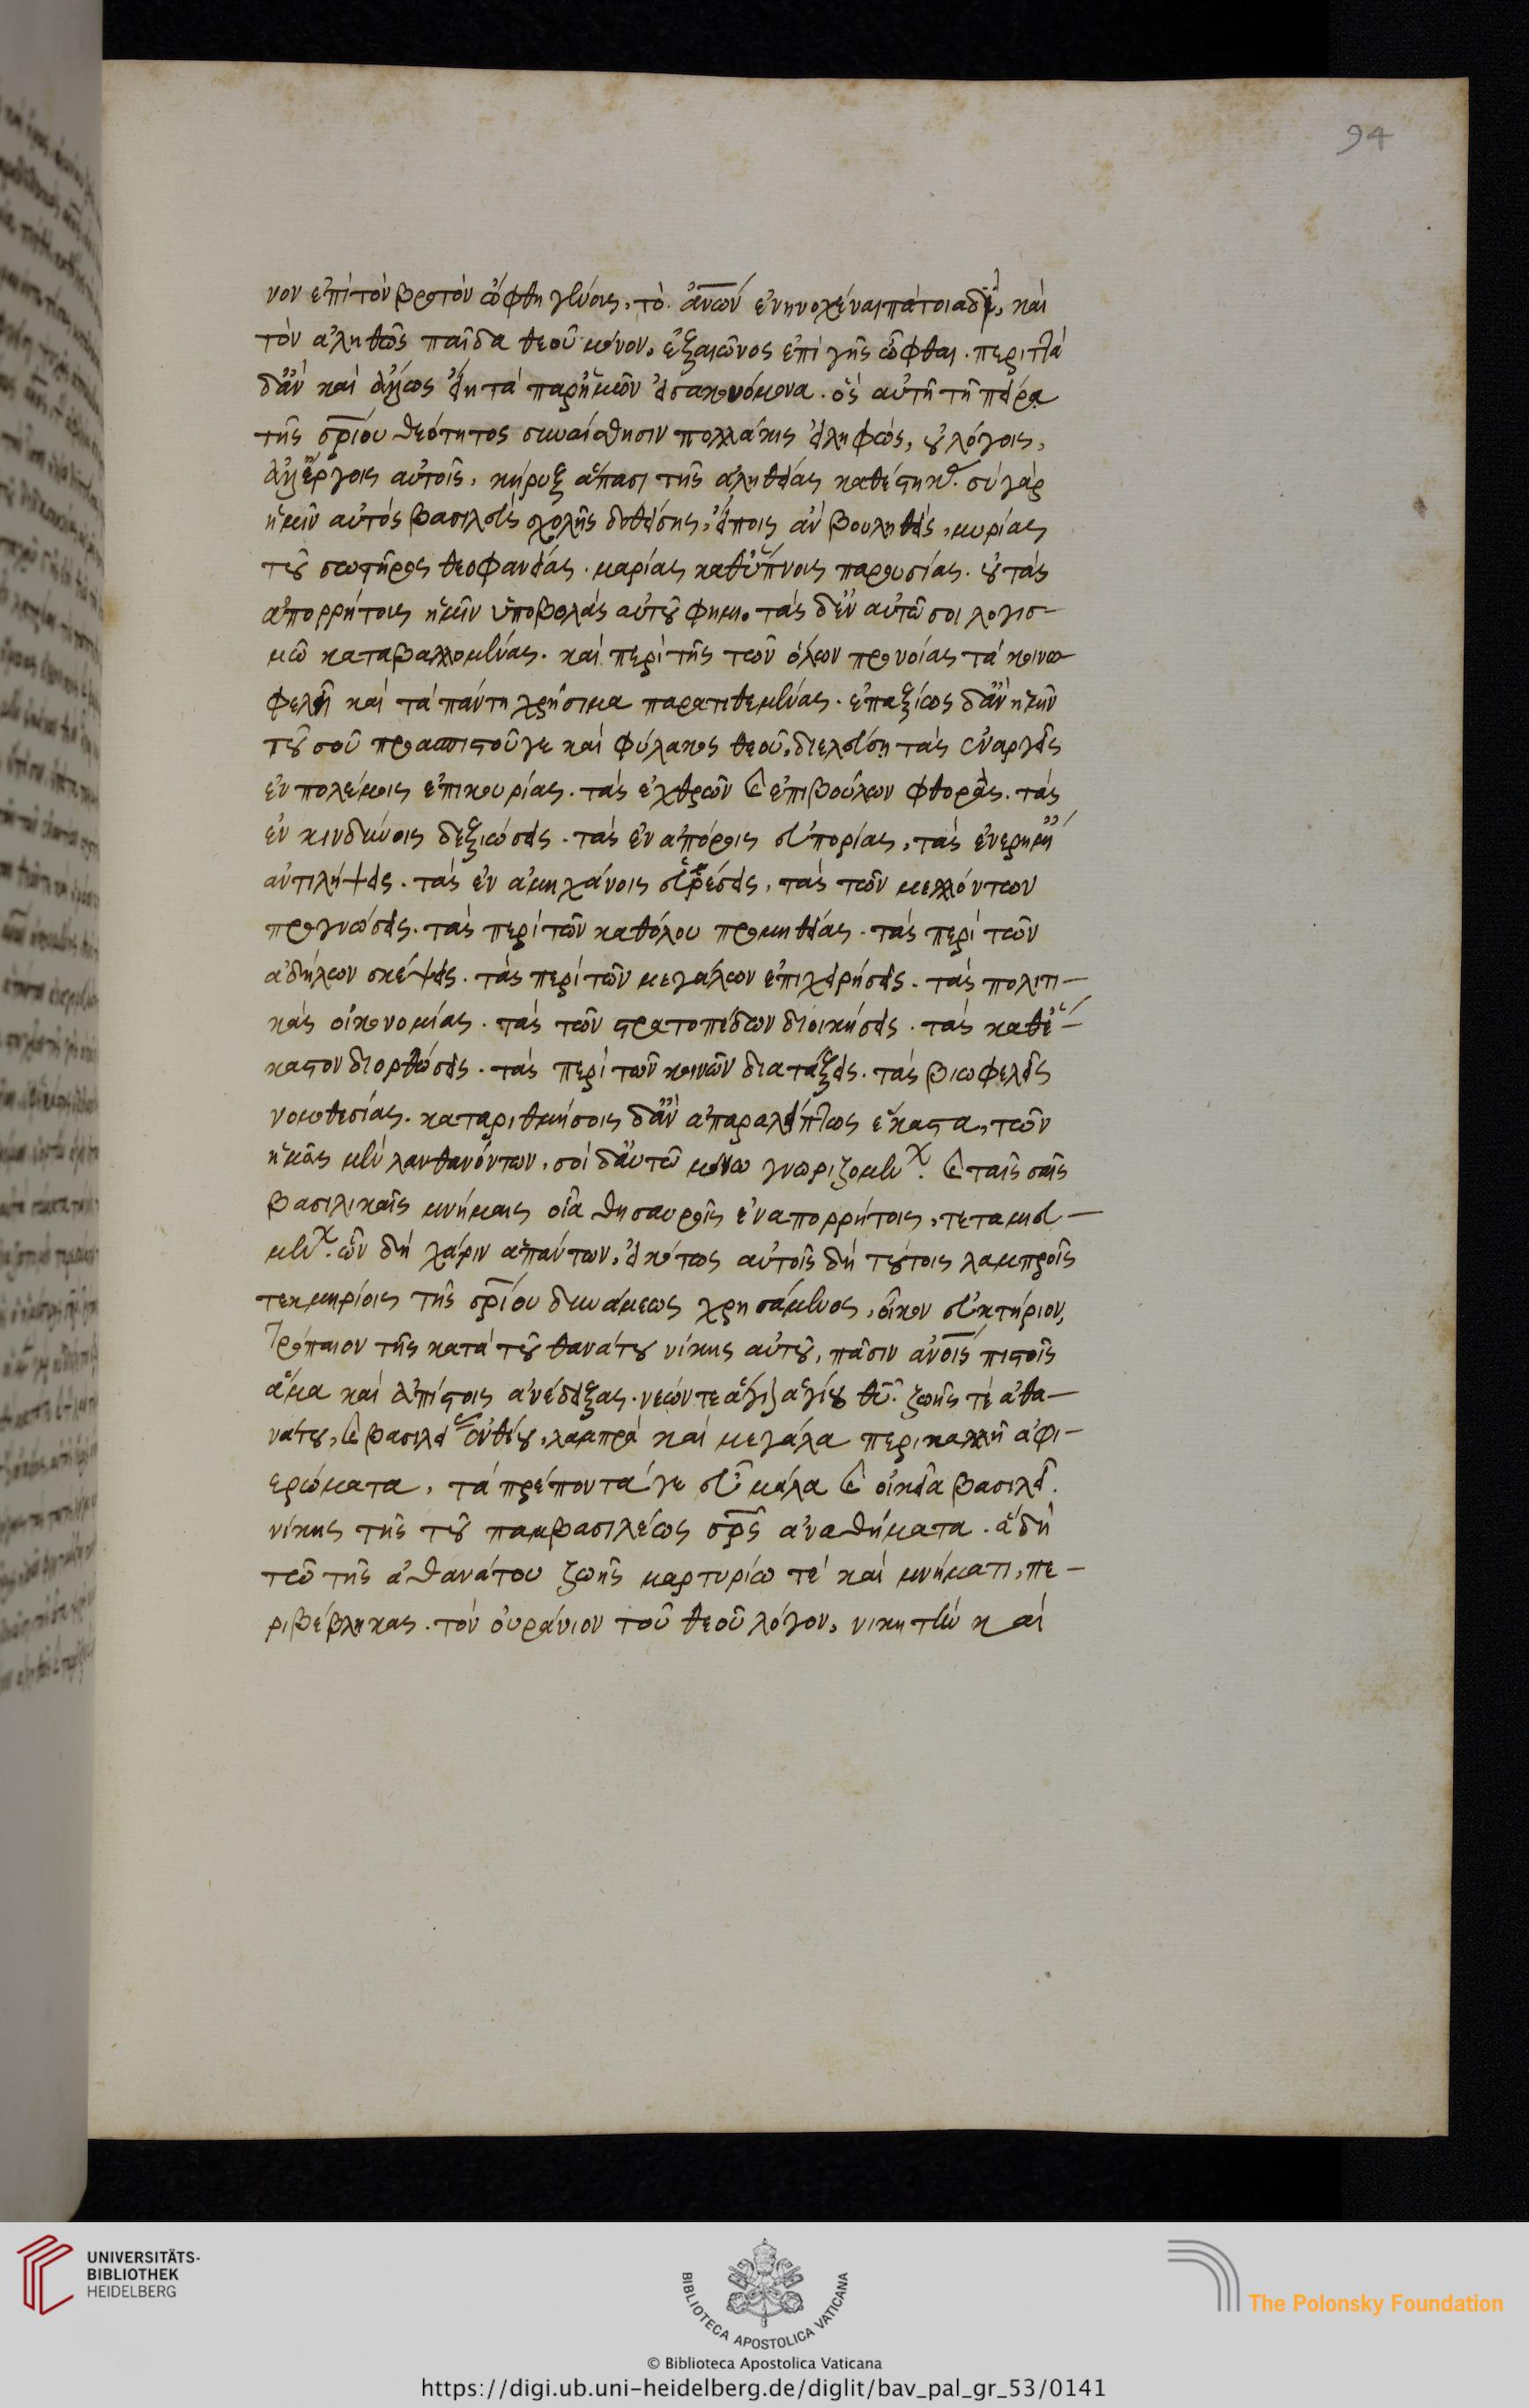 νον ἐπὶ τὸν βροτὸν ὤφθη γένοις, τὸ ἀν̅ω̅ν̅ ἐνηνοχέναι πάτοιαδε, καὶ
τὸν ἀληθῶς παῖδα θεοῦ μόνον, ἐξ αἰῶνος ἐπὶ γῆς ὦφθαι. περιττὰ
δ' ἂν καὶ ἄλλως εἴη τὰ παρ' ἡμῶν εἰσακουόμενα. ὃς αὐτῆ τῆ πείρα
τῆς σρ̅ίου θεότητος συναίσθησιν πολλάκις εἰληφὼς, οὐ λόγοις,
ἀλλ' ἔργοις αὐτοῖς, κήρυξ ἅπασι τῆς ἀληθείας καθέστηκας. σὺ γὰρ
ἡμῖν αὐτὸς βασιλεῦς σχολῆς δοθείσης, εἴποις ἂν βουληθεὶς, μυρίας
τοῦ σωτῆρος θεοφανείας. μαρίας καθ' ὕπνοις παρουσίας. οὐ τὰς
ἀπορρήτοις ἡμῖν ὑποβολὰς αὐτοῦ φημι. τὰς δ' ἐν αὐτῶ σοι λογισ-
μῶ καταβαλλομένας. καὶ περὶ τῆς τῶν ὅλων προνοίας τὰ κοινω
φελῆ καὶ τὰ πάντη χρήσιμα παρατιθεμένας. ἐπαξίως δ' ἂν ἡμῖν
τοῦ σοῦ προασπιστοῦ γε καὶ φύλακος θεοῦ, διελεύση τὰς ἐναργεῖς
ἐν πολέμοις ἐπικουρίας. τὰς ἐχθρῶν καὶ ἐπιβούλων φθορὰς. τὰς
ἐν κινδύνοις δεξιώσεις. τὰς ἐν ἀπόροις εὐπορίας, τὰς ἐν ἐρημί
ἀντιλήψεις. τὰς ἐν ἀμηχάνοις εὑρέσεις, τὰς τῶν μελλόντων
προγνώσεις. τὰς περὶ τῶν καθόλου προμηθείας. τὰς περὶ τῶν
ἀδήλων σκέψεις. τὰς περὶ τῶν μεγάλων ἐπιχειρήσεις. τὰς πολιτι-
κὰς οἰκονομίας. τὰς τῶν στρατοπέδων διοικήσεις. τὰς καθ' ἕ-
καστον διορθώσεις. τὰς περὶ τῶν κοινῶν διατάξεις. τὰς βιωφελεῖς
νομοθεσίας. καταριθμήσοις δ' ἂν ἀπαραλείπτως ἕκαστα, τῶν
ἡμᾶς μὲν λανθανόντων, σοὶ δ' αὐτῶ μόνω γνωριζομένων. καὶ ταῖς σαῖς
βασιλικαῖς μνήμαις οἷα θησαυροῖς ἐν ἀπορρήτοις, τεταμιευ-
μένων. ὧν δὴ χάριν ἁπάντων, εἰκότως αὐτοῖς δὴ τούτοις λαμπροῖς
τεκμηρίοις τῆς σρ̅ίου δυνάμεως χρησάμενος, οἶκον εὐκτήριον,
τρόπαιον τῆς κατὰ τοῦ θανάτου νίκης αὐτοῦ, πᾶσιν ἀν̅οις πιστοῖς
ἅμα καὶ ἀπίστοις ἀνέδειξας. νεών τε ἅγιον ἁγίου θ̅υ̅. ζωῆς τὲ ἀθα-
νάτου, καὶ βασιλείας ἐνθέου, λαμπρὰ καὶ μεγάλα περικαλλῆ ἀφι-
ερώματα, τὰ πρέποντά γε εὖ μάλα καὶ οἰκεῖα βασιλεῖ.
νίκης τῆς τοῦ παμβασιλέως σρ̅ς ἀναθήματα. ἃ δὴ
τῶ τῆς ἀθανάτου ζωῆς μαρτυρίω τὲ καὶ μνήματι, πε-
ριβέβληκας. τὸν οὐράνιον τοῦ θεοῦ λόγον, νικητὴν καὶ
94
UNIVERSITÄTS-
BIBLIOTHEK
HEIDELBERG
BIBLIOTECA APOSTOLICA VATICANA
The Polonsky Foundation
© Biblioteca Apostolica Vaticana
https://digi.ub.uni-heidelberg.de/diglit/bav_pal_gr_53/0141